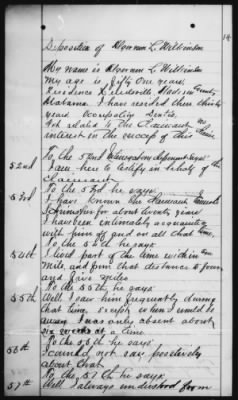 14
Deposition of Donnom L Wilkinson
My name is Donnom L Wilkinson
My age is fifty One years
Residence Bellesville Madison County
Alabama. I have resided there thirty
years. Occupation Dentist.
Not related to the Claimant no
interest in the success of this Claim
52nd To the 52nd Interrogatory deponent says
I am here to testify in behalf of the
Claimant
53rd To the 53rd he says
I have known the Claimant
for about twenty years
I have been intimately associated
with him off and on all that time.
54th To the 54th he says
I lived part of the time within one
mile, and from that distance to four
and five miles
55th To the 55th he says
Well I saw him frequently during
that time. Except when I would be
away I was only absent about
six weeks at a time.
56th To the 56th he says
I cannot not say positively
about that
57th To the 57th he says
Well I always understood from